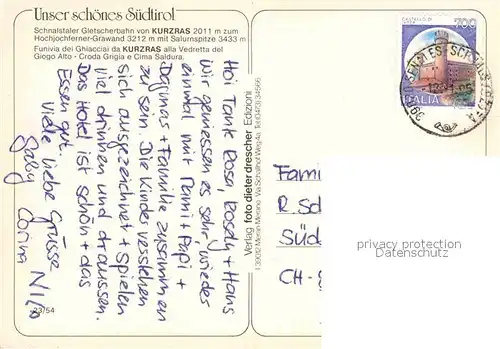 Unser schönes Südtirol
Schnalstaler Gletscherbahn von KURZRAS 2011 m zum
Hochjochferner-Grawand 3212 m mit Saturnspitze 3433 m
Funivia dei Ghiacciai da KURZRAS alla Vedretta del
Giego Alto - Croda Grigia e Cima Saldura.
Hoi Tante Rosa, Rosely + Hans
Wir geniessen es sehr, wiedes
einmal mit Mami + Papi +
+ Familie zusammen
zu sein. Die Kinder verstehen
sich ausgezeichnet + spielen
viel drinnen und draussen.
Das Hotel ist schön + das
Essen gut.
Viele liebe Grüsse
Gaby Corina Nico
23/54
Verlag foto dieter drescher Edizioni
I 39012 Meran-Merano Via Schalhof Weg 4a Tel. (0473) 34566
700
ITALIA
Fami
R. Sc
Süd
CH-8
privacy protection
Datenschutz